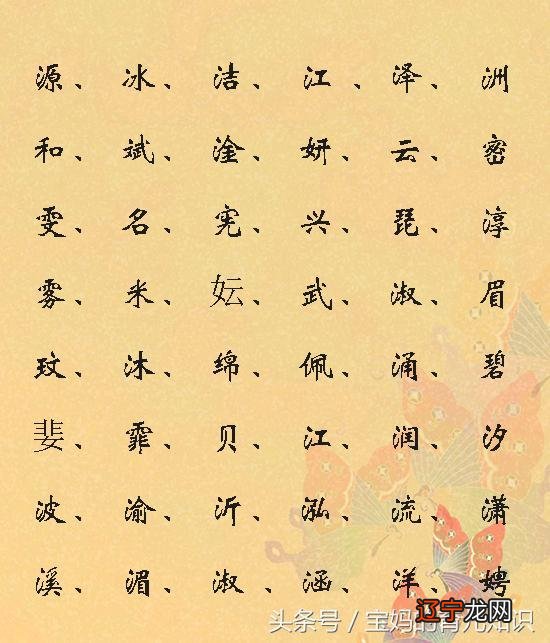 源、冰、洁、江、泽、洲
和、斌、淦、妍、云、密
雯、名、宪、兴、琵、淳
雾、米、妘、武、淑、眉
玟、沐、绵、佩、涌、碧
婓、霏、贝、江、润、汐
波、渝、沂、泓、流、潇
溪、湄、淑、涵、洋、娉
头条号／宝妈的育儿知识
辽宁龙网